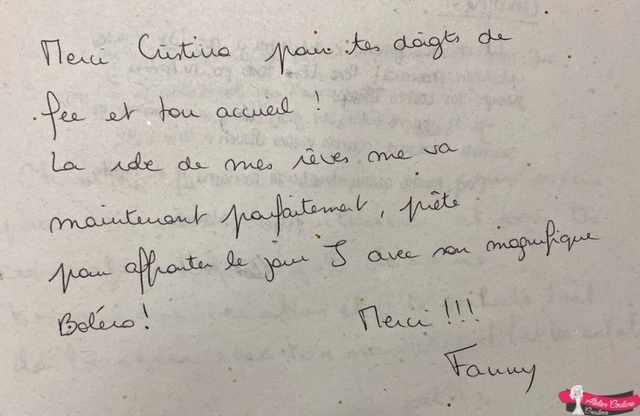 Merci Cristina pour tes doigts de
fée et ton accueil !
La robe de mes rêves me va
maintenant parfaitement, prête
pour affronter le jour J avec son magnifique
Boléro!
Merci !!!
Fanny
Atelier Couture